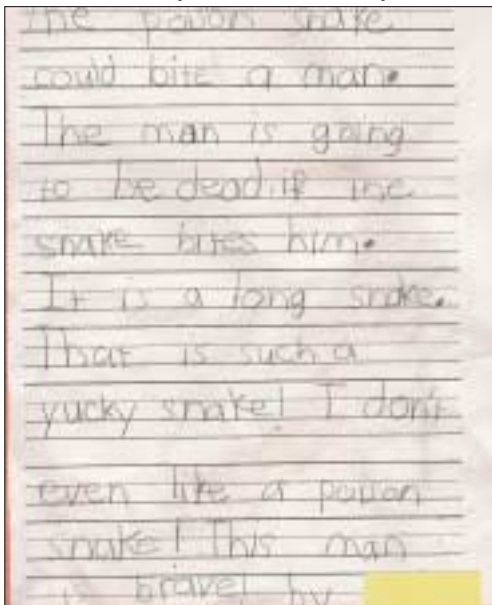 the poison snake
could bite a man.
The man is going
to be dead if the
snake bites him.
It is a long snake.
That is such a
yucky snake! I don't
even like a poison
snake! This man
is brave! by